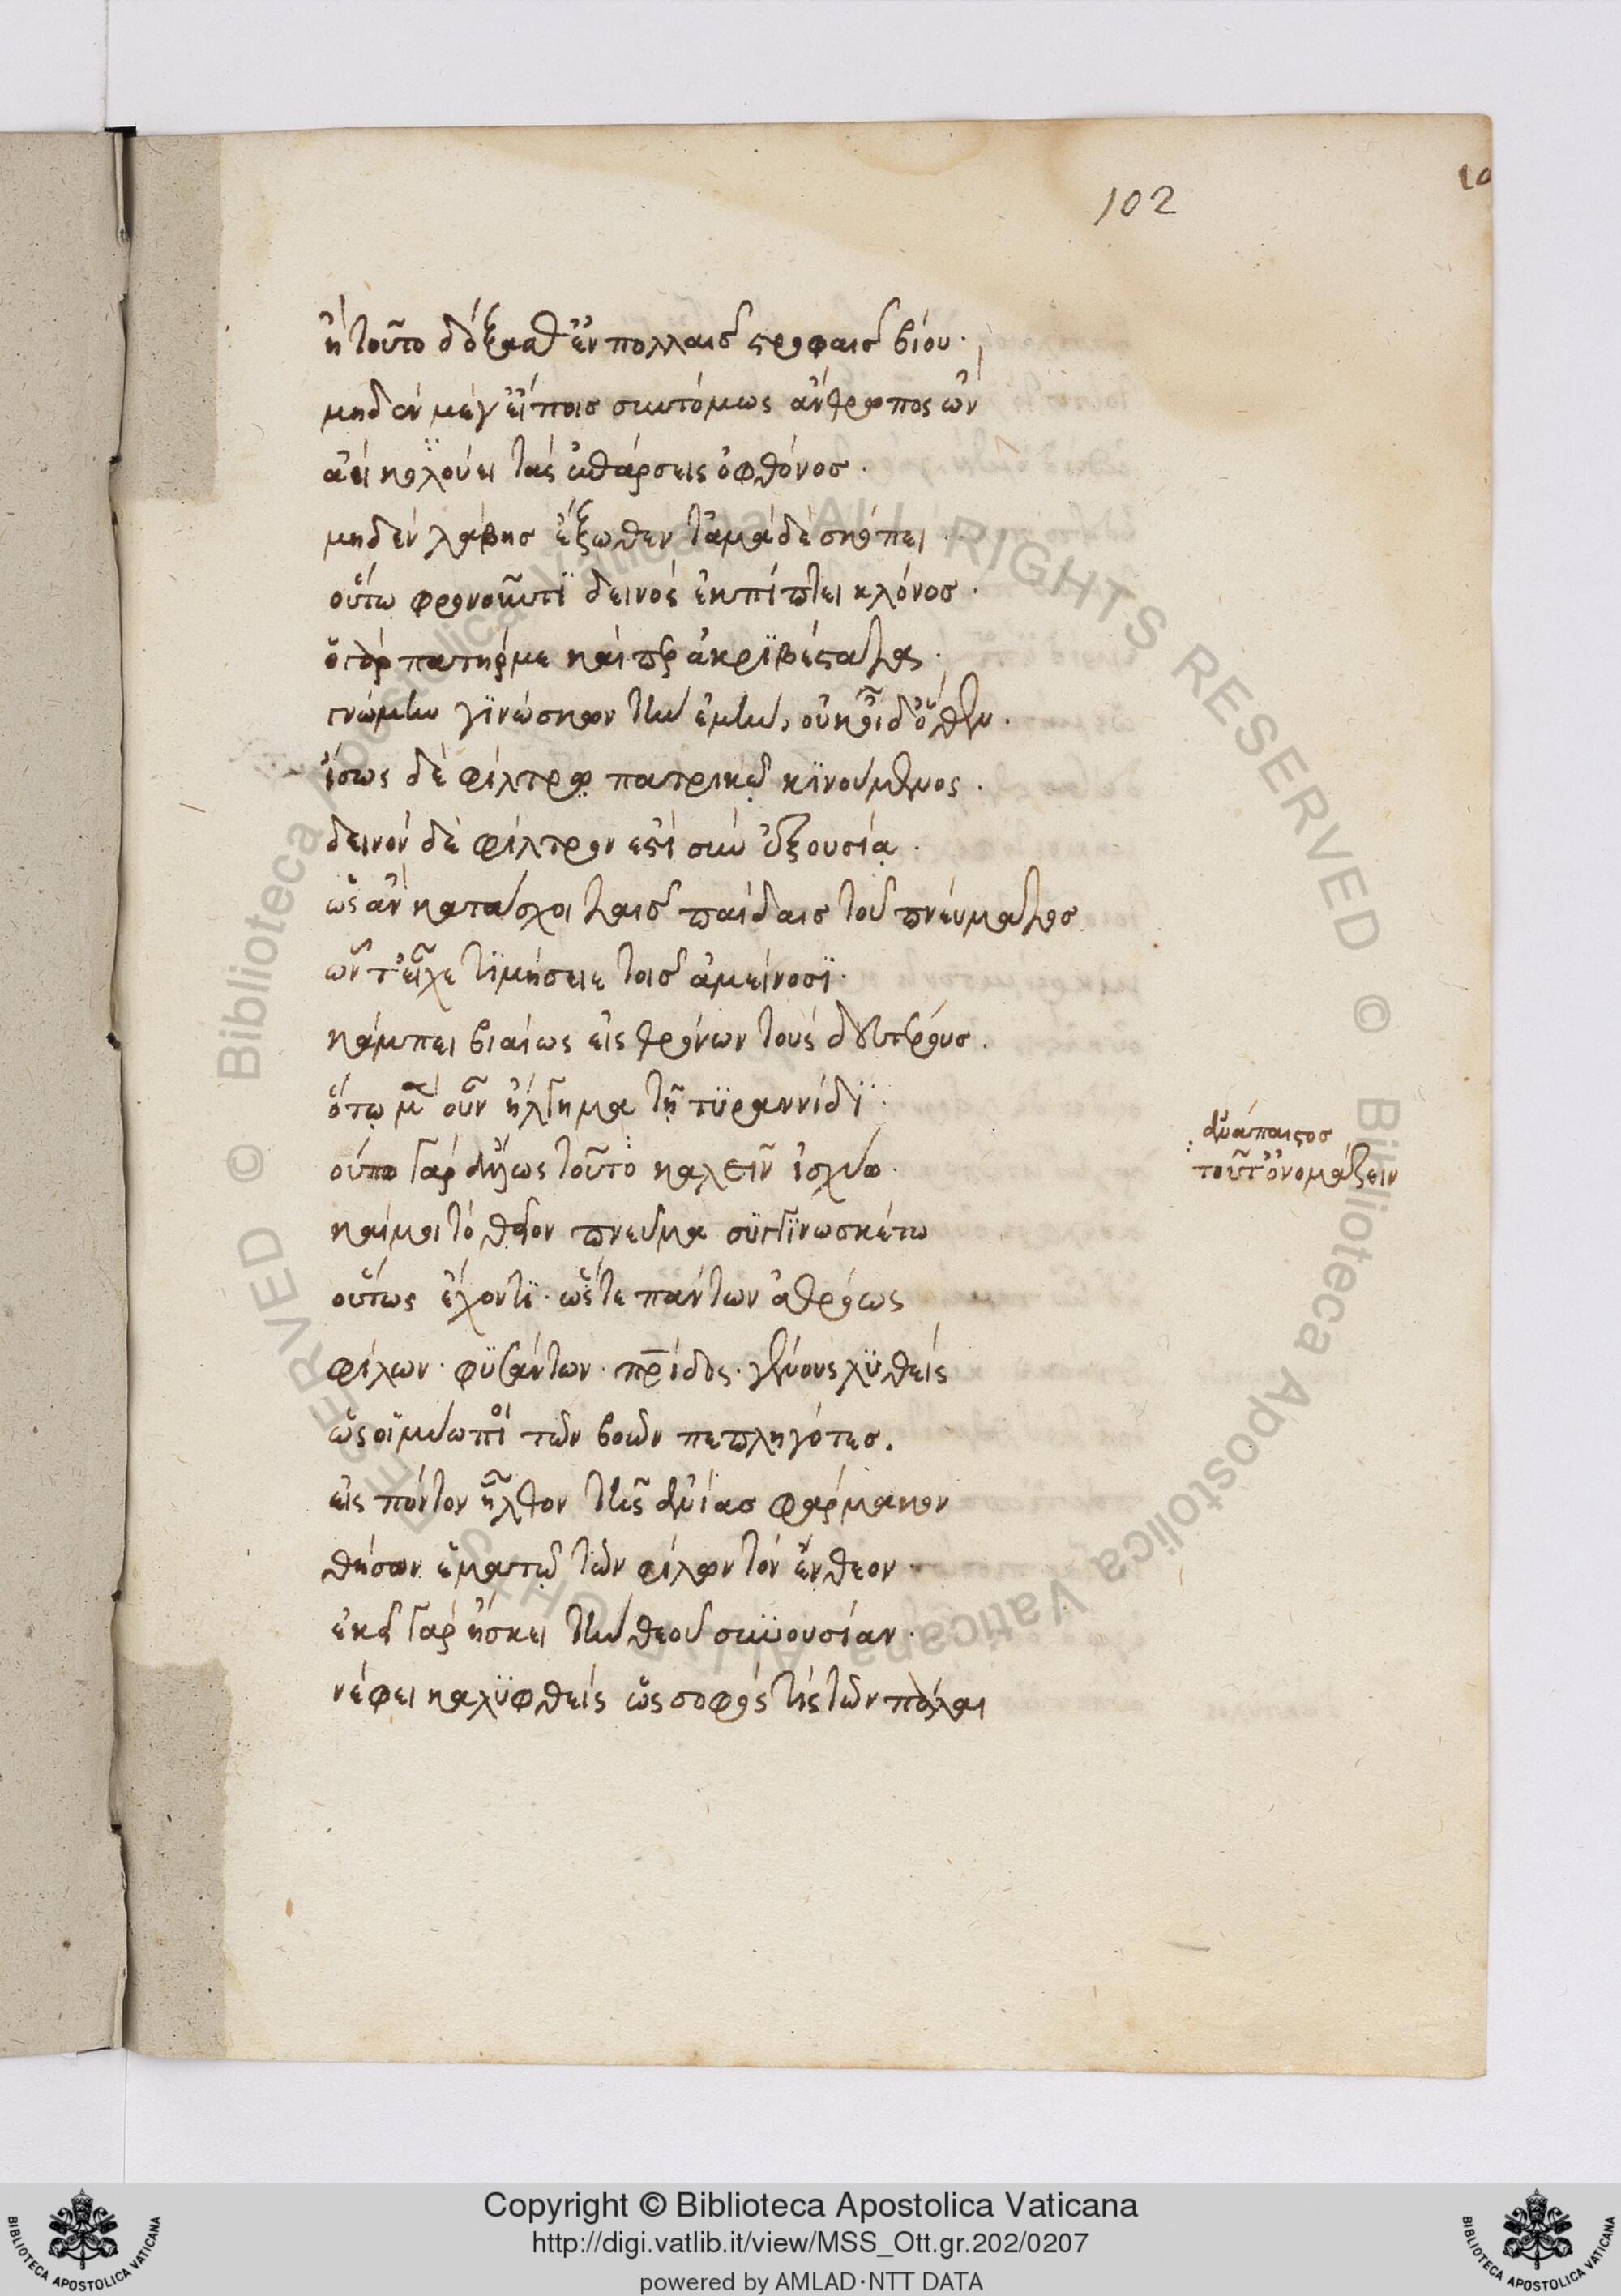 102
μηδὲν μέγ' εἴποις συντόμως ἄνθρωπος ὤν
ἀεὶ κολούει τὰς ἐπάρσεις ὁ φθόνος.
μηδὲν λάβης ἔξωθεν τἀμὰ δὲ σκόπει.
οὕτω φρονοῦντϊ δεινὸς ἐμπίπτει κλόνος.
ὁ γὰρ πατήρ με καίπερ ἀκρϊβέστατα.
γνώμην γϊνώσκων τὴν ἐμὴν, οὐκ οἶδ' ὅθεν.
ἴσως δὲ φίλτρῳ πατρικῷ κϊνούμενος.
δεινὸν δὲ φίλτρον ἐστὶ σὺν ἐξουσίᾳ.
ὡς ἂν κατάσχοι ταῖς παίδαις τοῦ πνεύματος
ὧν τ' εἶχε τϊμήσειε τοῖς ἀμείνοσϊ.
κάμπει βιαίως εἰς θρόνων τοὺς δευτέρους.
μὲν οὖν τῇ τϋραννίδϊ.
οὔπω γὰρ ἄλλως τοῦτο καλεῖν ἰσχύω.
καί μοι τὸ θεῖον πνεῦμα συγγϊνωσκέτω
οὕτως ἔχοντϊ. ὥστε πάντων ἀθρόως
φίλων. φϋσάντων. πρίδος. γένους λϋθεὶς
ὡς οἱ μύωπι τῶν βοῶν πεπληγότες.
εἰς πόντον ἦλθον τῆς ἀνίας φάρμακον
θήσων ἐμαυτῷ τῶν φίλων τὸν ἔνθεον.
ἐκεῖ γὰρ ἤσκει τὴν θεοῦ συνουσίαν.
νέφει καλϋφθεὶς ὡς σοφός τις τῶν πάλαι
ἀνάπαιστος
τοῦτ' ὀνομάζειν
Copyright © Biblioteca Apostolica Vaticana
http://digi.vatlib.it/view/MSS_Ott.gr.202/0207
powered by AMLAD·NTT DATA
BIBLIOTECA APOSTOLICA VATICANA
BIBLIOTECA APOSTOLICA VATICANA